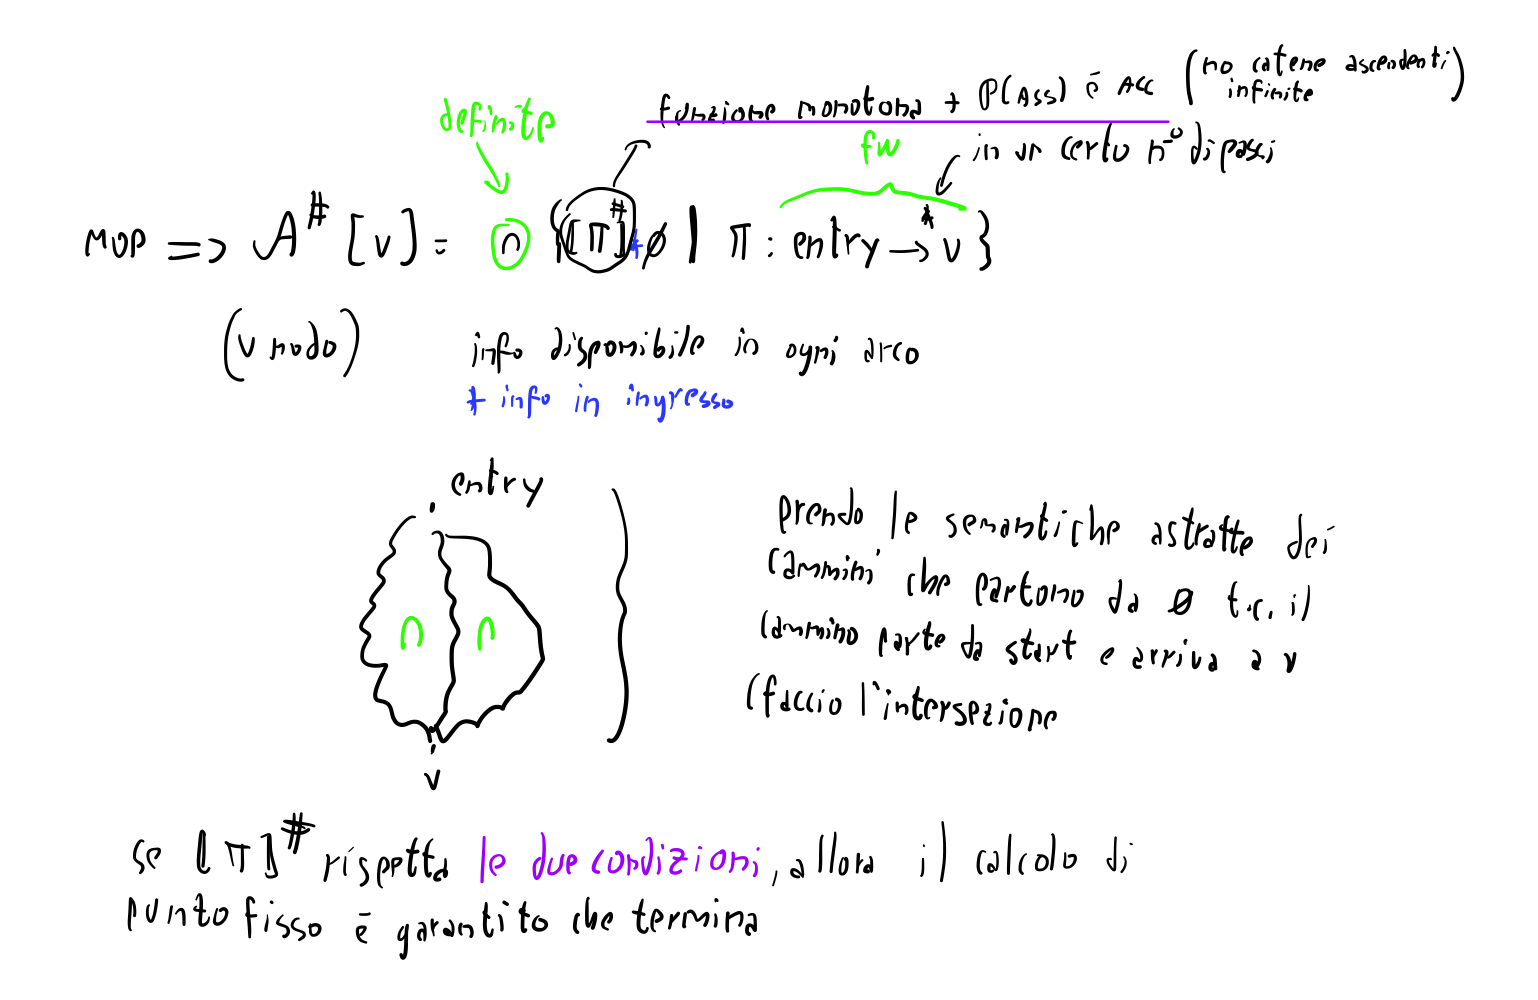 definite
funzione monotona + P(Ass) è ACC (no catene ascendenti infinite)
fw
in un certo n° di passi
MOP => A# [v] = ∩ {[π]# ∅ | π : entry →* v}
(v nodo)
info disponibile in ogni arco
* info in ingresso
entry
∩ ∩
v
prendo le semantiche astratte dei
cammini che partono da ∅ t.c. il
cammino parte da start e arriva a v
(faccio l'intersezione
se [π]# rispetta le due condizioni, allora il calcolo di
punto fisso è garantito che termina